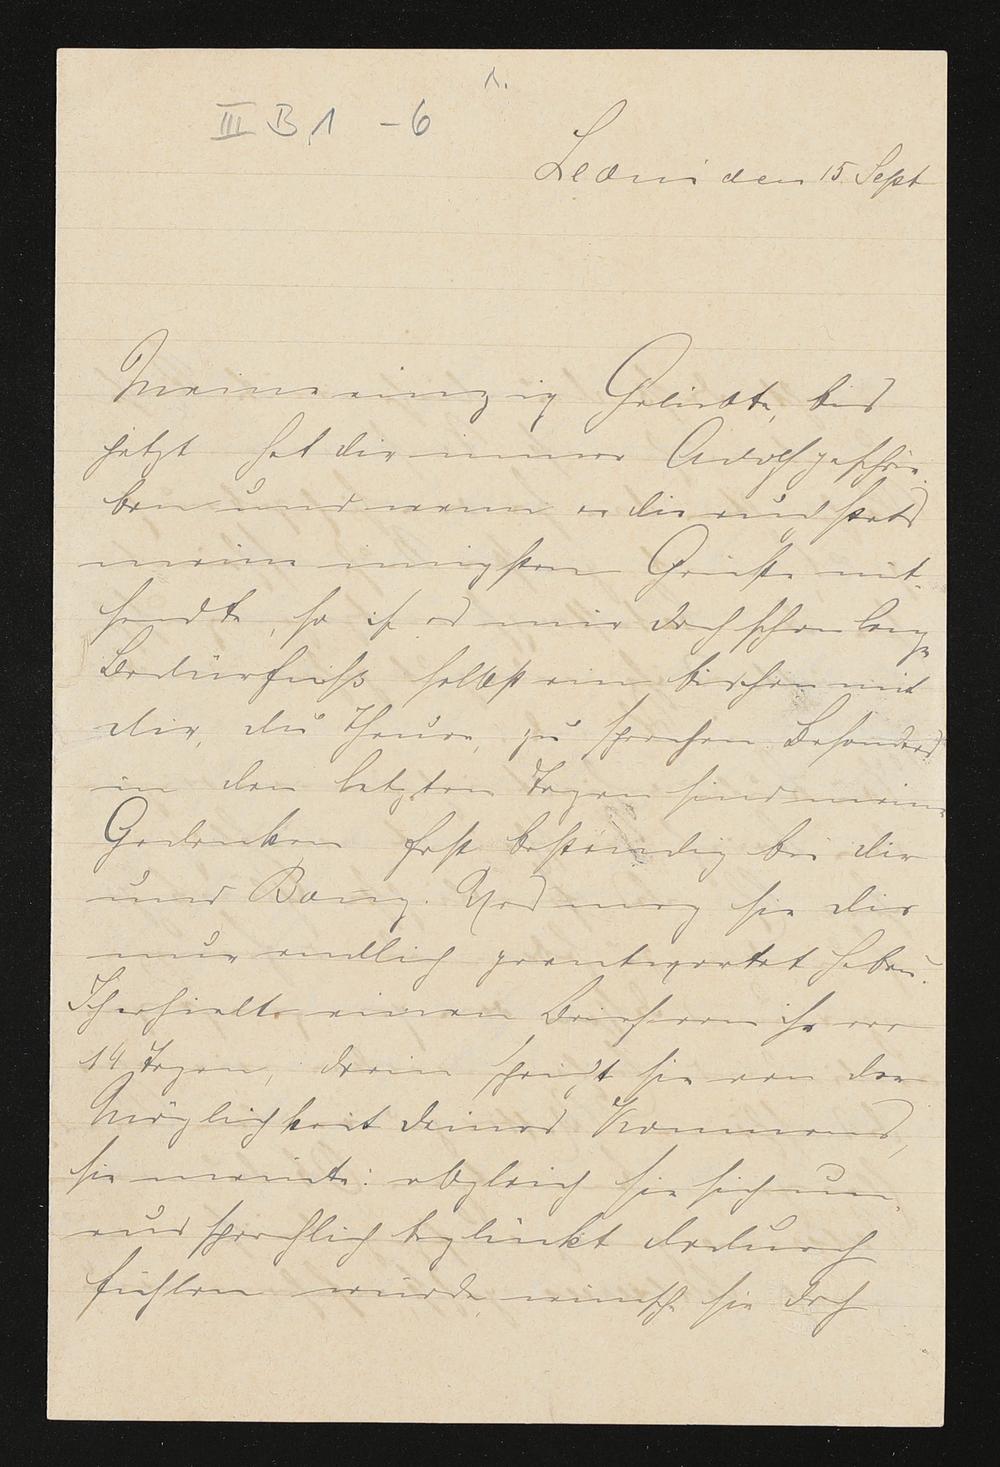 1.
III B 1 - 6
Ledni den 15. Sept
Meine einzig Geliebte, bis
jetzt hat dir immer Adolf geschrie-
ben und wenn er dir auch stets
meine innigsten Grüße mit-
sendte, so ist es mir doch schon lange
Bedürfniß selbst ein bischen mit
dir, du Theure, zu sprechen. Besonders
in den letzten Tagen sind meine
Gedanken fast beständig bei dir
und Was mag sie dir
nur endlich geantwortet haben.
Ich erhielt einen Brief von ihr vor
14 Tagen, darin spricht sie von der
Möglichkeit deines Kommens,
sie meinte: obgleich sie sich un-
aussprechlich beglückt dadurch
fühlen würde, wünsche sie doch